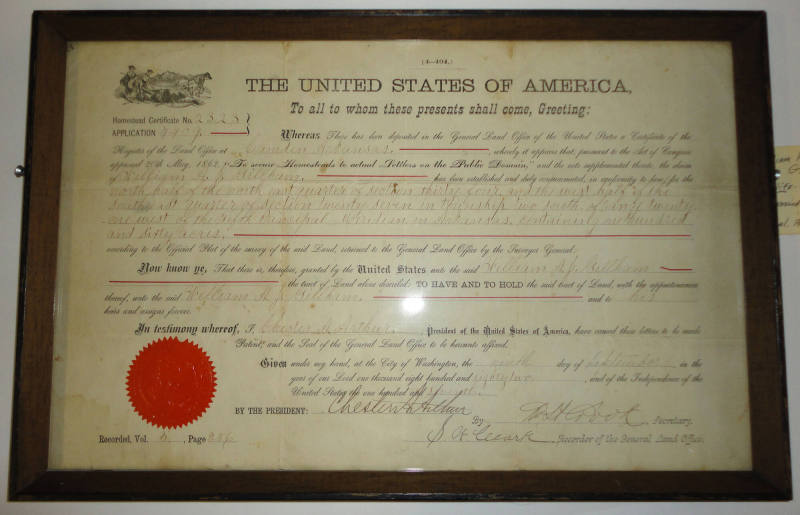 (4-404.)
THE UNITED STATES OF AMERICA,
To all to whom these presents shall come, Greeting:
Homestead Certificate No. 2328
APPLICATION 5409.
Whereas There has been deposited in the General Land Office of the United States a Certificate of the
Register of the Land Office at Camden Arkansas, whereby it appears that, pursuant to the Act of Congress
approved 20th May, 1862, "To secure Homesteads to actual Settlers on the Public Domain," and the acts supplemental thereto, the claim
of William A. J. has been established and duly consummated, in conformity to law, for the
north half of the north east quarter of section thirty four, and the west half of the
south east quarter of section twenty seven in township two south, of range twenty
one west of the fifth Principal Meridian in Arkansas, containing one hundred
and sixty acres,
according to the Official Plat of the survey of the said Land, returned to the General Land Office by the Surveyor General:
Now know ye, That there is, therefore, granted by the United States unto the said William A. J.
the tract of Land above described: TO HAVE AND TO HOLD the said tract of Land, with the appurtenances
thereof, unto the said William A. J. and to his
heirs and assigns forever.
In testimony whereof, I, Chester A. Arthur, President of the United States of America, have caused these letters to be made
Patent, and the Seal of the General Land Office to be hereunto affixed.
Given under my hand, at the City of Washington, the ninth day of September, in the
year of our Lord one thousand eight hundred and eighty two, and of the Independence of the
United States the one hundred and seventh.
BY THE PRESIDENT: Chester A. Arthur
By Secretary.
Recorded, Vol. Page
S. W. Clark, Recorder of the General Land Office.